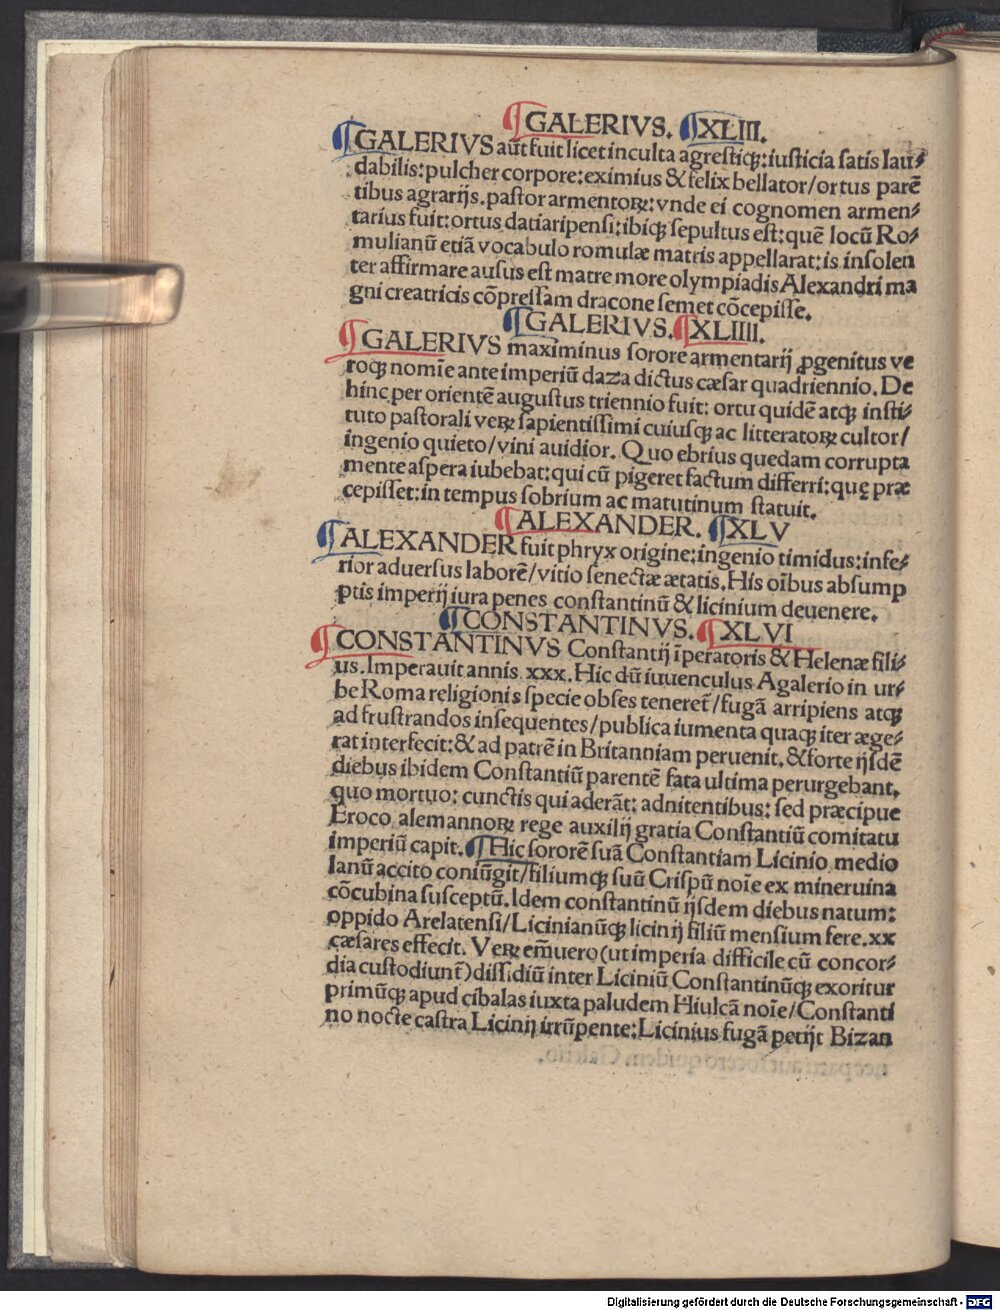 ¶GALERIVS. ¶XLIII.
¶GALERIVS aūt fuit licet inculta agrestiqꝫ: iusticia satis lau⸗
dabilis: pulcher corpore: eximius & felix bellator/ortus parē
tibus agrarijs. pastor armentoꝝ: vnde ei cognomen armen⸗
tarius fuit: ortus datiaripensi: ibiqꝫ sepultus est: quē locū Ro⸗
mulianū etiā vocabulo romulæ matris appellarat: is insolen
ter affirmare ausus est matre more olympiadis Alexandri ma
gni creatricis cōpressam dracone semet cōcepisse.
¶GALERIVS. ¶XLIIII.
¶GALERIVS maximinus sorore armentarij ꝓgenitus ve
roqꝫ nomīe ante imperiū daza dictus cæsar quadriennio. De
hinc per orientē augustus triennio fuit: ortu quidē atqꝫ insti⸗
tuto pastorali veꝝ sapientissimi cuiusqꝫ ac litteratoꝝ cultor/
ingenio quieto/vini auidior. Quo ebrius quedam corrupta
mente aspera iubebat: qui cū pigeret factum differri: quę præ
cepisset: in tempus sobrium ac matutinum statuit.
¶ALEXANDER. ¶XLV
¶ALEXANDER fuit phryx origine: ingenio timidus: infe⸗
rior aduersus laborē/vitio senectæ ætatis. His oībus absump
ptis imperij iura penes constantinū & licinium deuenere.
¶CONSTANTINVS. ¶XLVI
¶CONSTANTINVS Constantij īperatoris & Helenæ fili⸗
us. Imperauit annis. xxx. Hic dū iuuenculus Agalerio in ur⸗
be Roma religionis specie obses teneret̄/fugā arripiens atqꝫ
ad frustrandos insequentes/publica iumenta quaqꝫ iter æge⸗
rat interfecit: & ad patrē in Britanniam peruenit. & forte ijsdē
diebus ibidem Constantiū parentē fata ultima perurgebant.
quo mortuo: cunctis qui aderāt: adnitentibus: sed præcipue
Eroco alemannoꝝ rege auxilij gratia Constantiū comitatu
imperiū capit. ¶Hic sororē suā Constantiam Licinio medio
lanū accito coniūgit/filiumqꝫ suū Crispū noīe ex mineruina
cōcubina susceptū. Idem constantinū ijsdem diebus natum:
oppido Arelatensi/Licinianūqꝫ licinij filiū mensium fere. xx
cæsares effecit. Veꝝ em̄uero (ut imperia difficile cū concor⸗
dia custodiunt̄) dissidiū inter Liciniū Constantinūqꝫ exoritur
primūqꝫ apud cibalas iuxta paludem Hiulcā noīe/Constanti
no nocte castra Licinij irrūpente: Licinius fugā petijt Bizan
Digitalisierung gefördert durch die Deutsche Forschungsgemeinschaft - DFG